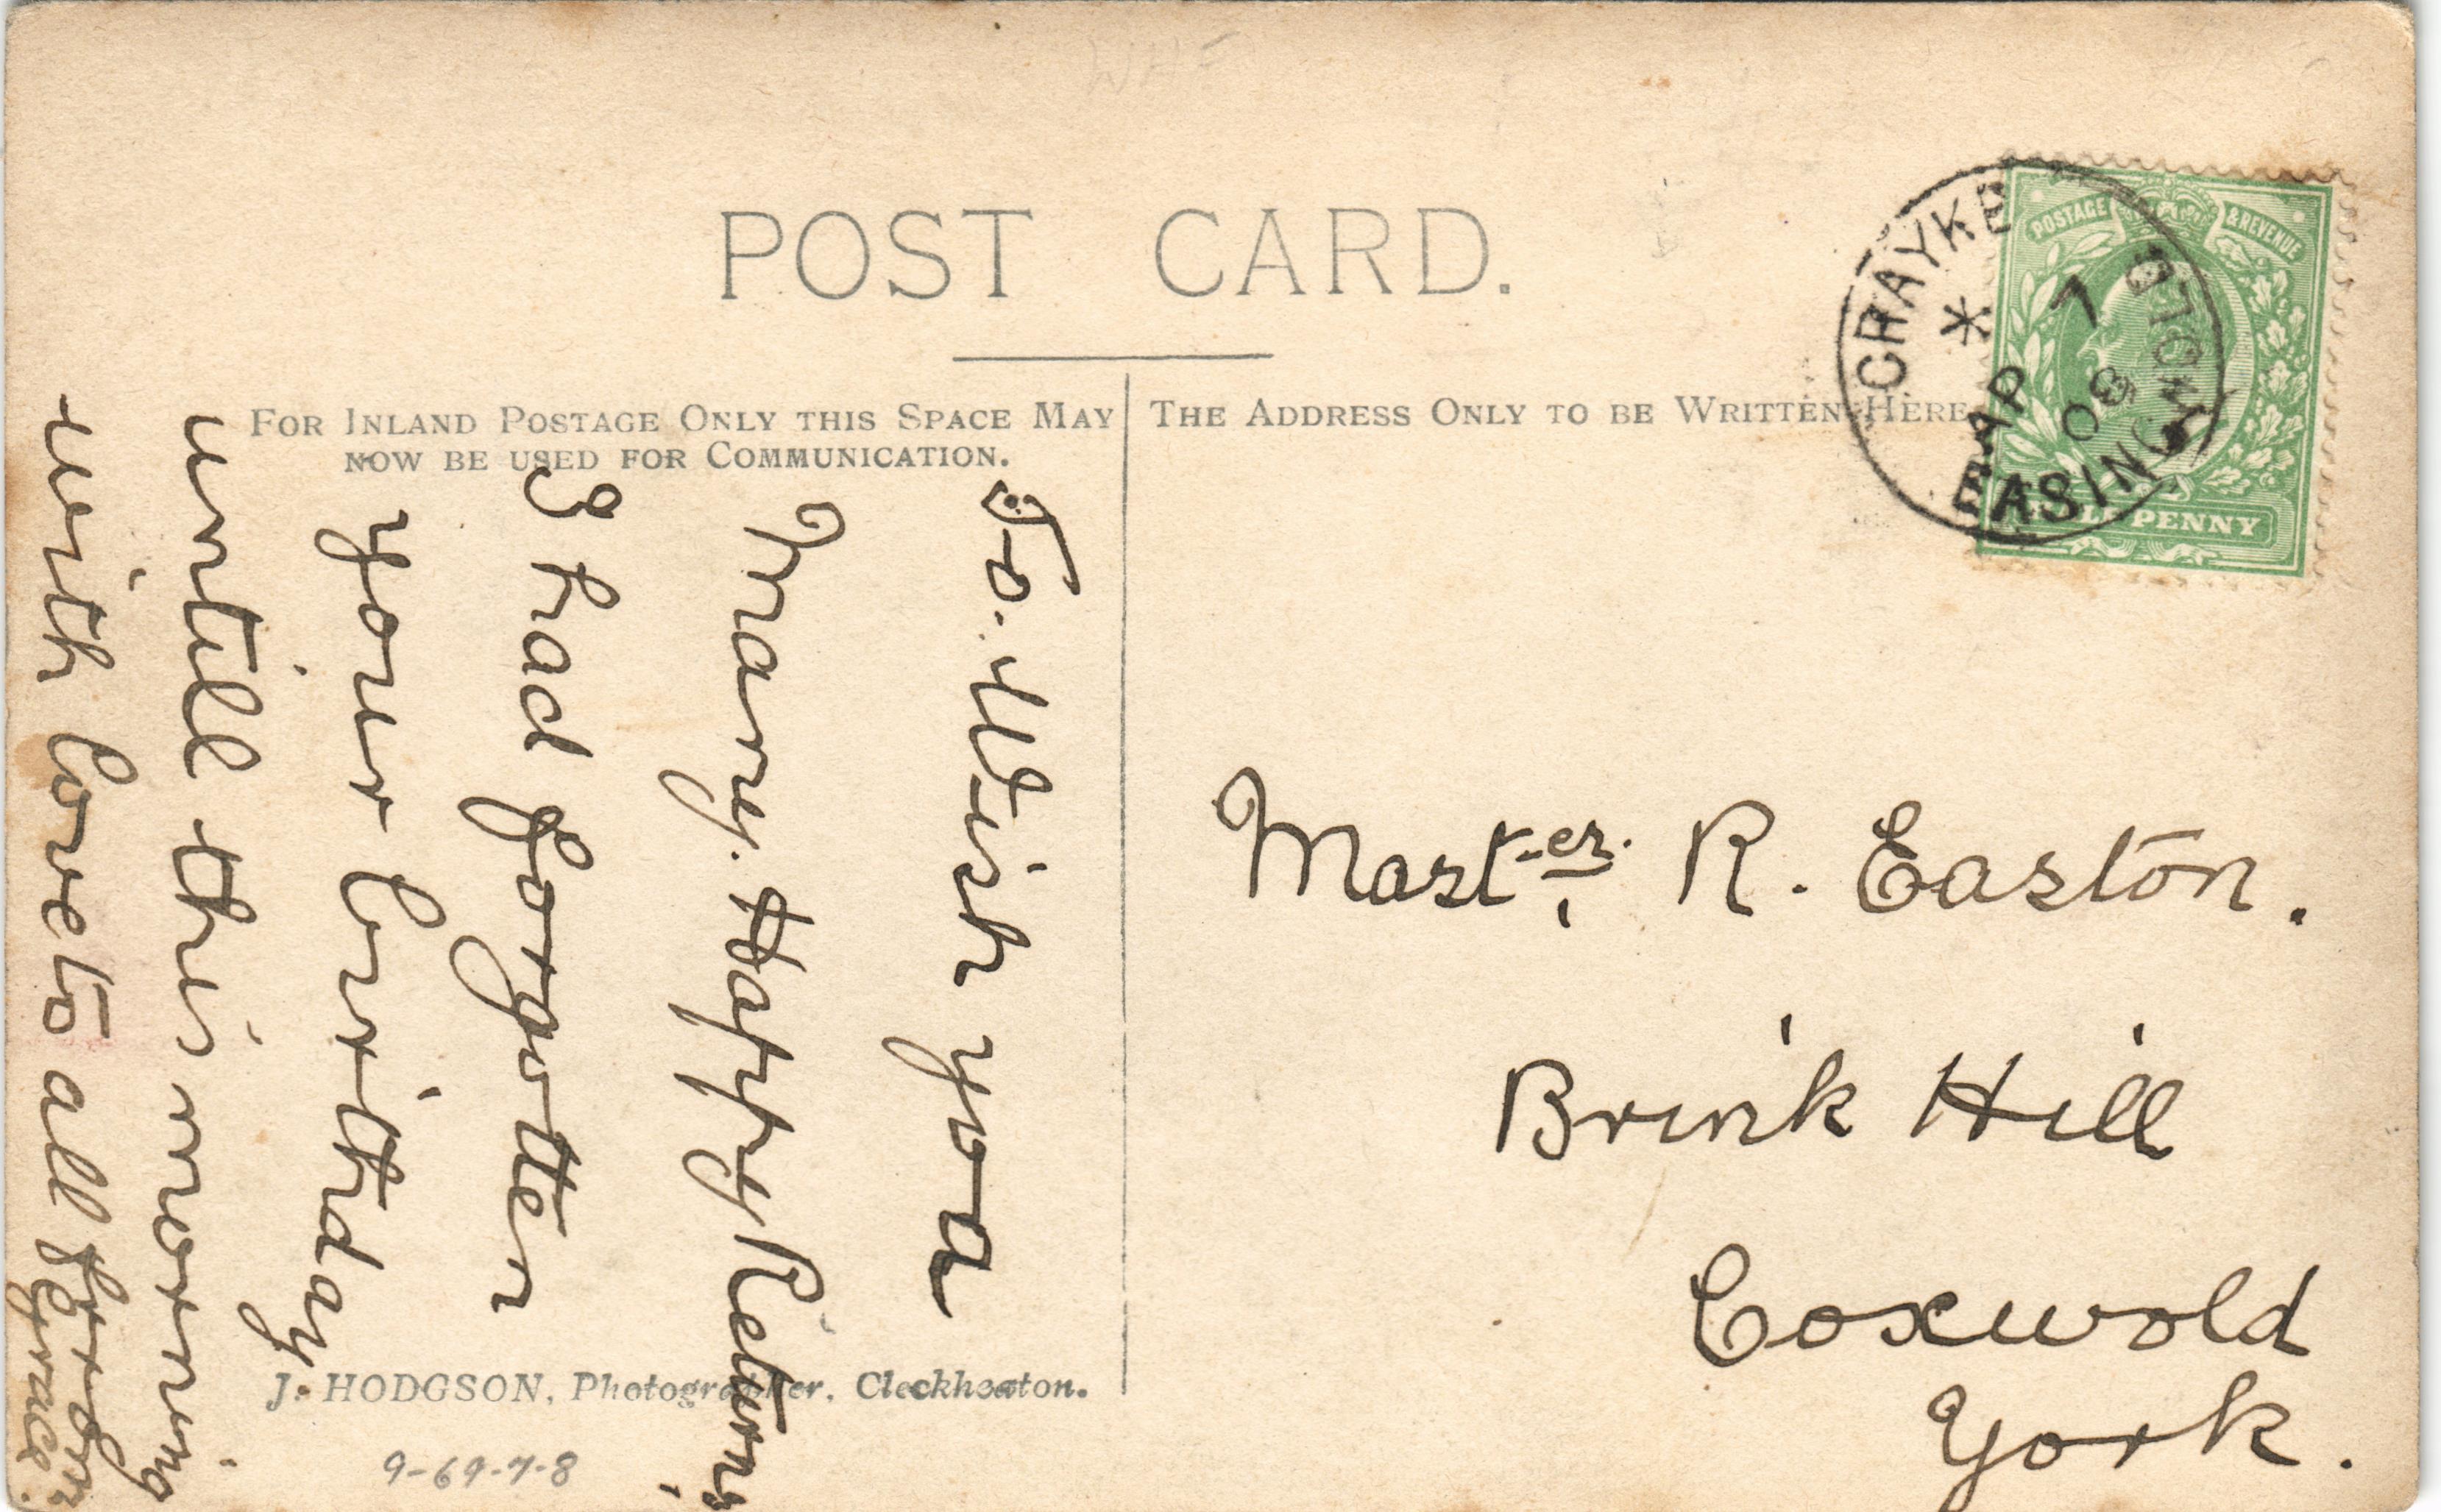 WHF
POST CARD.
FOR INLAND POSTAGE ONLY THIS SPACE MAY
NOW BE USED FOR COMMUNICATION.
THE ADDRESS ONLY TO BE WRITTEN HERE
CRAYKE
EASINGWOLD
*
7
AP
08
POSTAGE & REVENUE
HALFPENNY
To. Wish you
Many. Happy Returns
I had forgotten
your birthday
untill this morning
with love to all from
Grace.
Master. R. Easton.
Brink Hill
Coxwold
York.
J. HODGSON, Photographer, Cleckheaton.
9-69-7-8